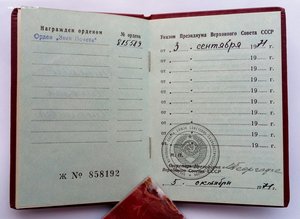 Награжден орденом
№ ордена
Орден "Знак Почета"
815589
Ж № 858192
Указом Президиума Верховного Совета СССР
от 3 сентября 1971 г.
от 19 г.
от 19 г.
от 19 г.
от 19 г.
от 19 г.
от 19 г.
от 19 г.
М.П.
Секретарь Президиума
Верховного Совета СССР
5 октября 1971 г.